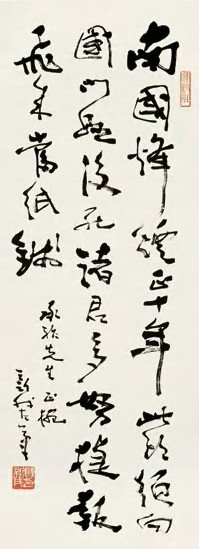 南國烽煙正十年此頭須向
國门懸後死諸君多努捷報
飛來當紙錢
先生正腕
新我左筆